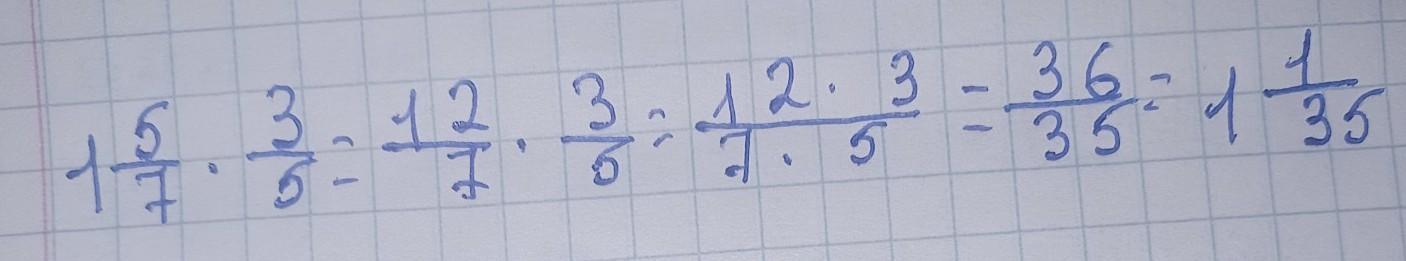 1 5/7 · 3/5 = 12/7 · 3/5 = 12 · 3/7 · 5 = 36/35 = 1 1/35